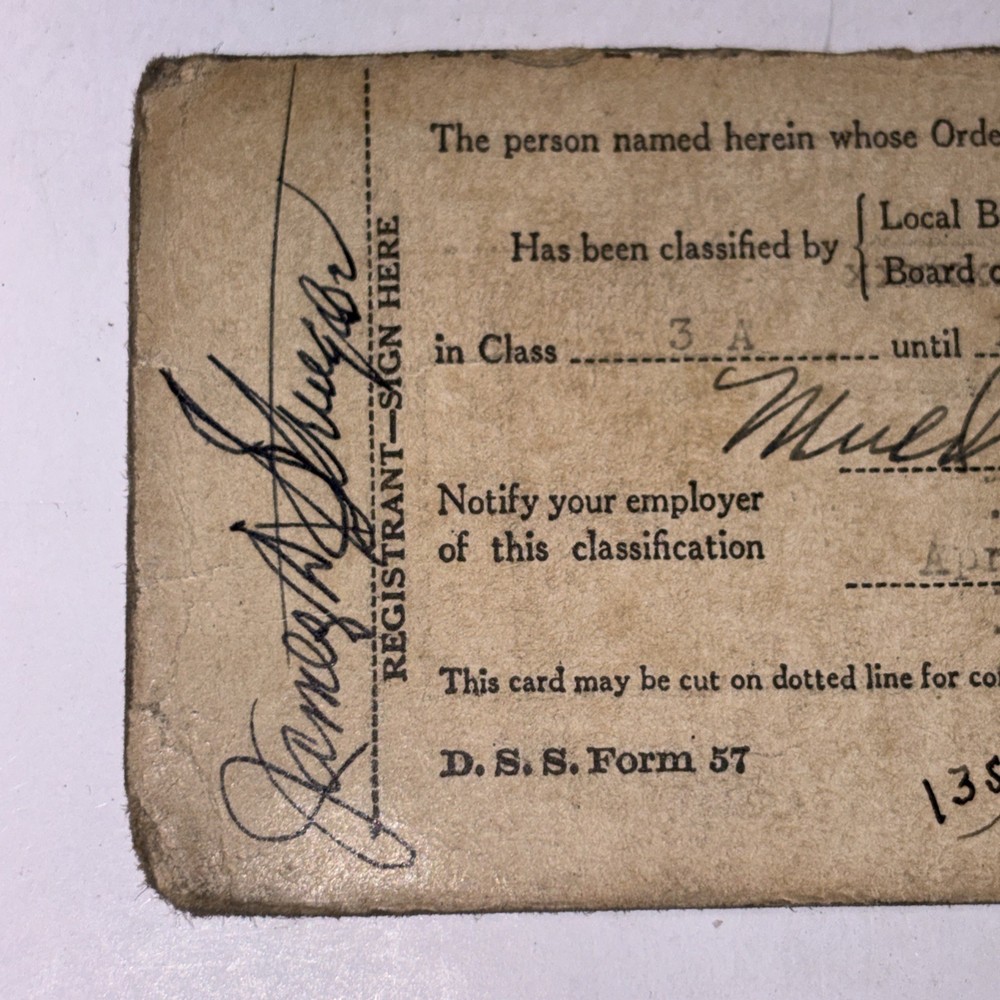 The person named herein whose Orde
Has been classified by { Local B
Board o
in Class 3 A until
Notify your employer
of this classification
Apr
This card may be cut on dotted line for co
D. S. S. Form 57
135
REGISTRANT—SIGN HERE
James